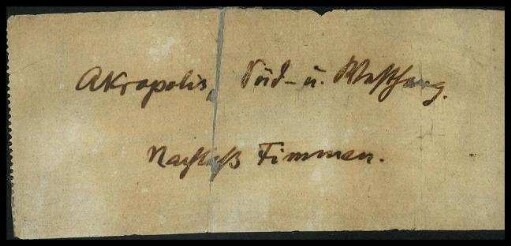 Akropolis, Süd- u. Westhang.
Nachlaß Fimmen.